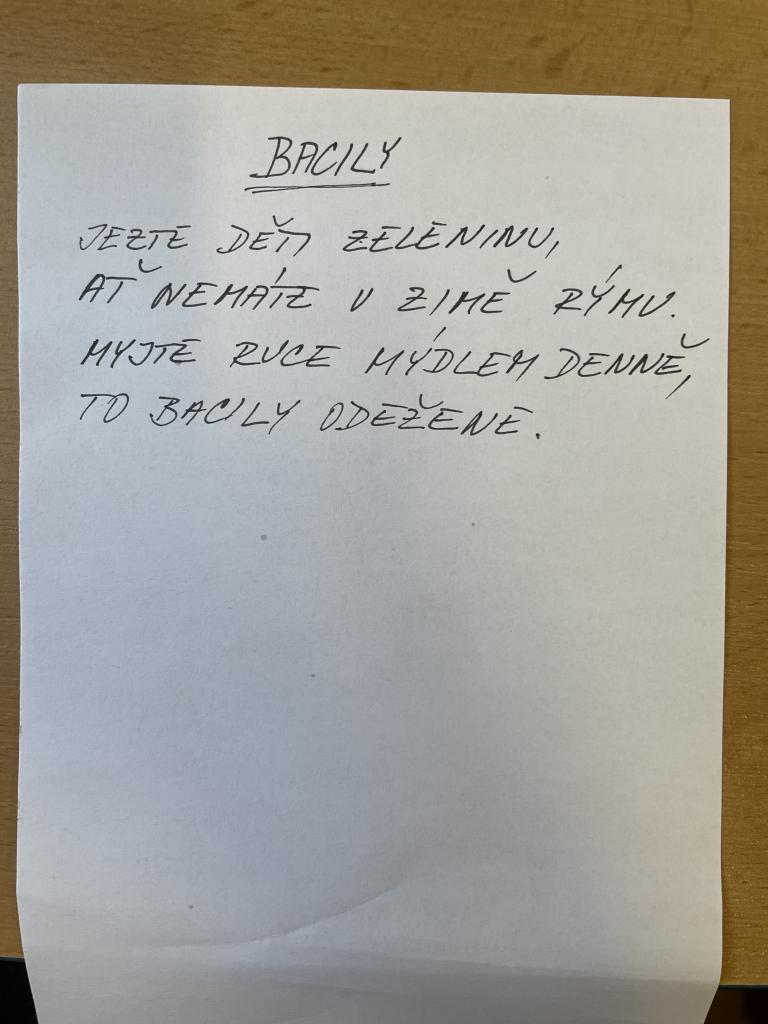 BACILY
JEZTE DĚTI ZELENINU,
AŤ NEMÁTE V ZIMĚ RÝMU.
MYJTE RUCE MÝDLEM DENNĚ,
TO BACILY ODEŽENE.